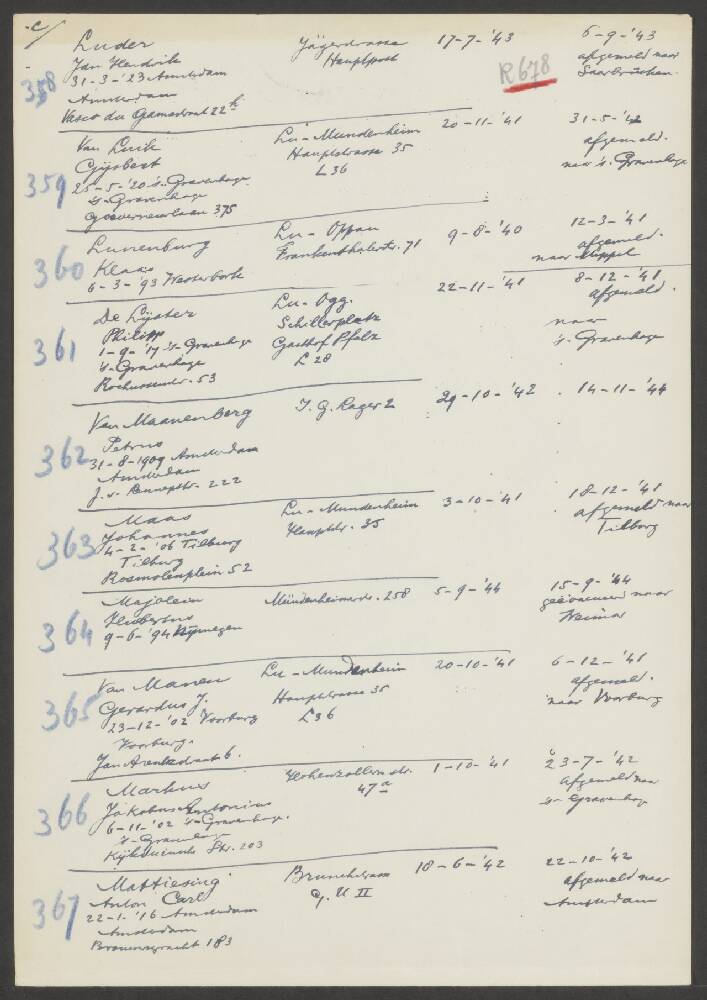 c/
358
Luder
Jan Hendrik
31-3-'23 Amsterdam
Amsterdam
Vasco da Gamastraat 22 h
Jägerstrasse
Hauptpost
17-7-'43
R678
6-9-'43
afgemeld naar
Saarbrücken.
359
Van Luik
Gijsbert
25-5-'20 's-Gravenhage
's-Gravenhage
Gouverneurlaan 375
Lu-Mundenheim
Hauptstrasse 35
L36
20-11-'41
31-5-'42
afgemeld.
naar 's-Gravenhage
360
Lunenburg
Klaas
6-3-'93 Westerbork
Lu-Oppau
Frankenthalerstr. 71
9-8-'40
12-3-'41
afgemeld.
naar Meppel
361
De Lijster
Philipp
1-9-'17 's-Gravenhage
's-Gravenhage
Rochussenstr. 53
Lu-Ogg.
Schillerplatz
Gasthof Pfalz
L 28
22-11-'41
8-12-'41
afgemeld.
naar
's-Gravenhage
362
Van Maanenberg
Petrus
31-8-1909 Amsterdam
Amsterdam
J. v. Lennepstr. 222
I. G. Lager 2
29-10-'42
14-11-'44
363
Maas
Johannes
4-2-'06 Tilburg
Tilburg
Rosmolenplein 52
Lu-Mundenheim
Hauptstr. 35
3-10-'41
18-12-'41
afgemeld naar
Tilburg
364
Majoleen
Hubertus
9-6-'94 Nijmegen
Mundenheimerstr. 258
5-9-'44
15-9-'44
geëvacueerd naar
Weimar
365
Van Manen
Gerardus J.
23-12-'02 Voorburg
Voorburg.
Jan Arentsstraat 6.
Lu-Mundenheim
Hauptstrasse 35
L36
20-10-'41
6-12-'41
afgemeld.
naar Voorburg
366
Markus
Jakobus Antonius
6-11-'02 's-Gravenhage.
's-Gravenhage
Kijkduinsche Str. 203
Hohenzollern str.
47a
1-10-'41
23-7-'42
afgemeld naar
's-Gravenhage
367
Mattiesing
Anton Carl
22-1-'16 Amsterdam
Amsterdam
Brouwersgracht 183
G. U II
18-6-'42
22-10-'42
afgemeld naar
Amsterdam